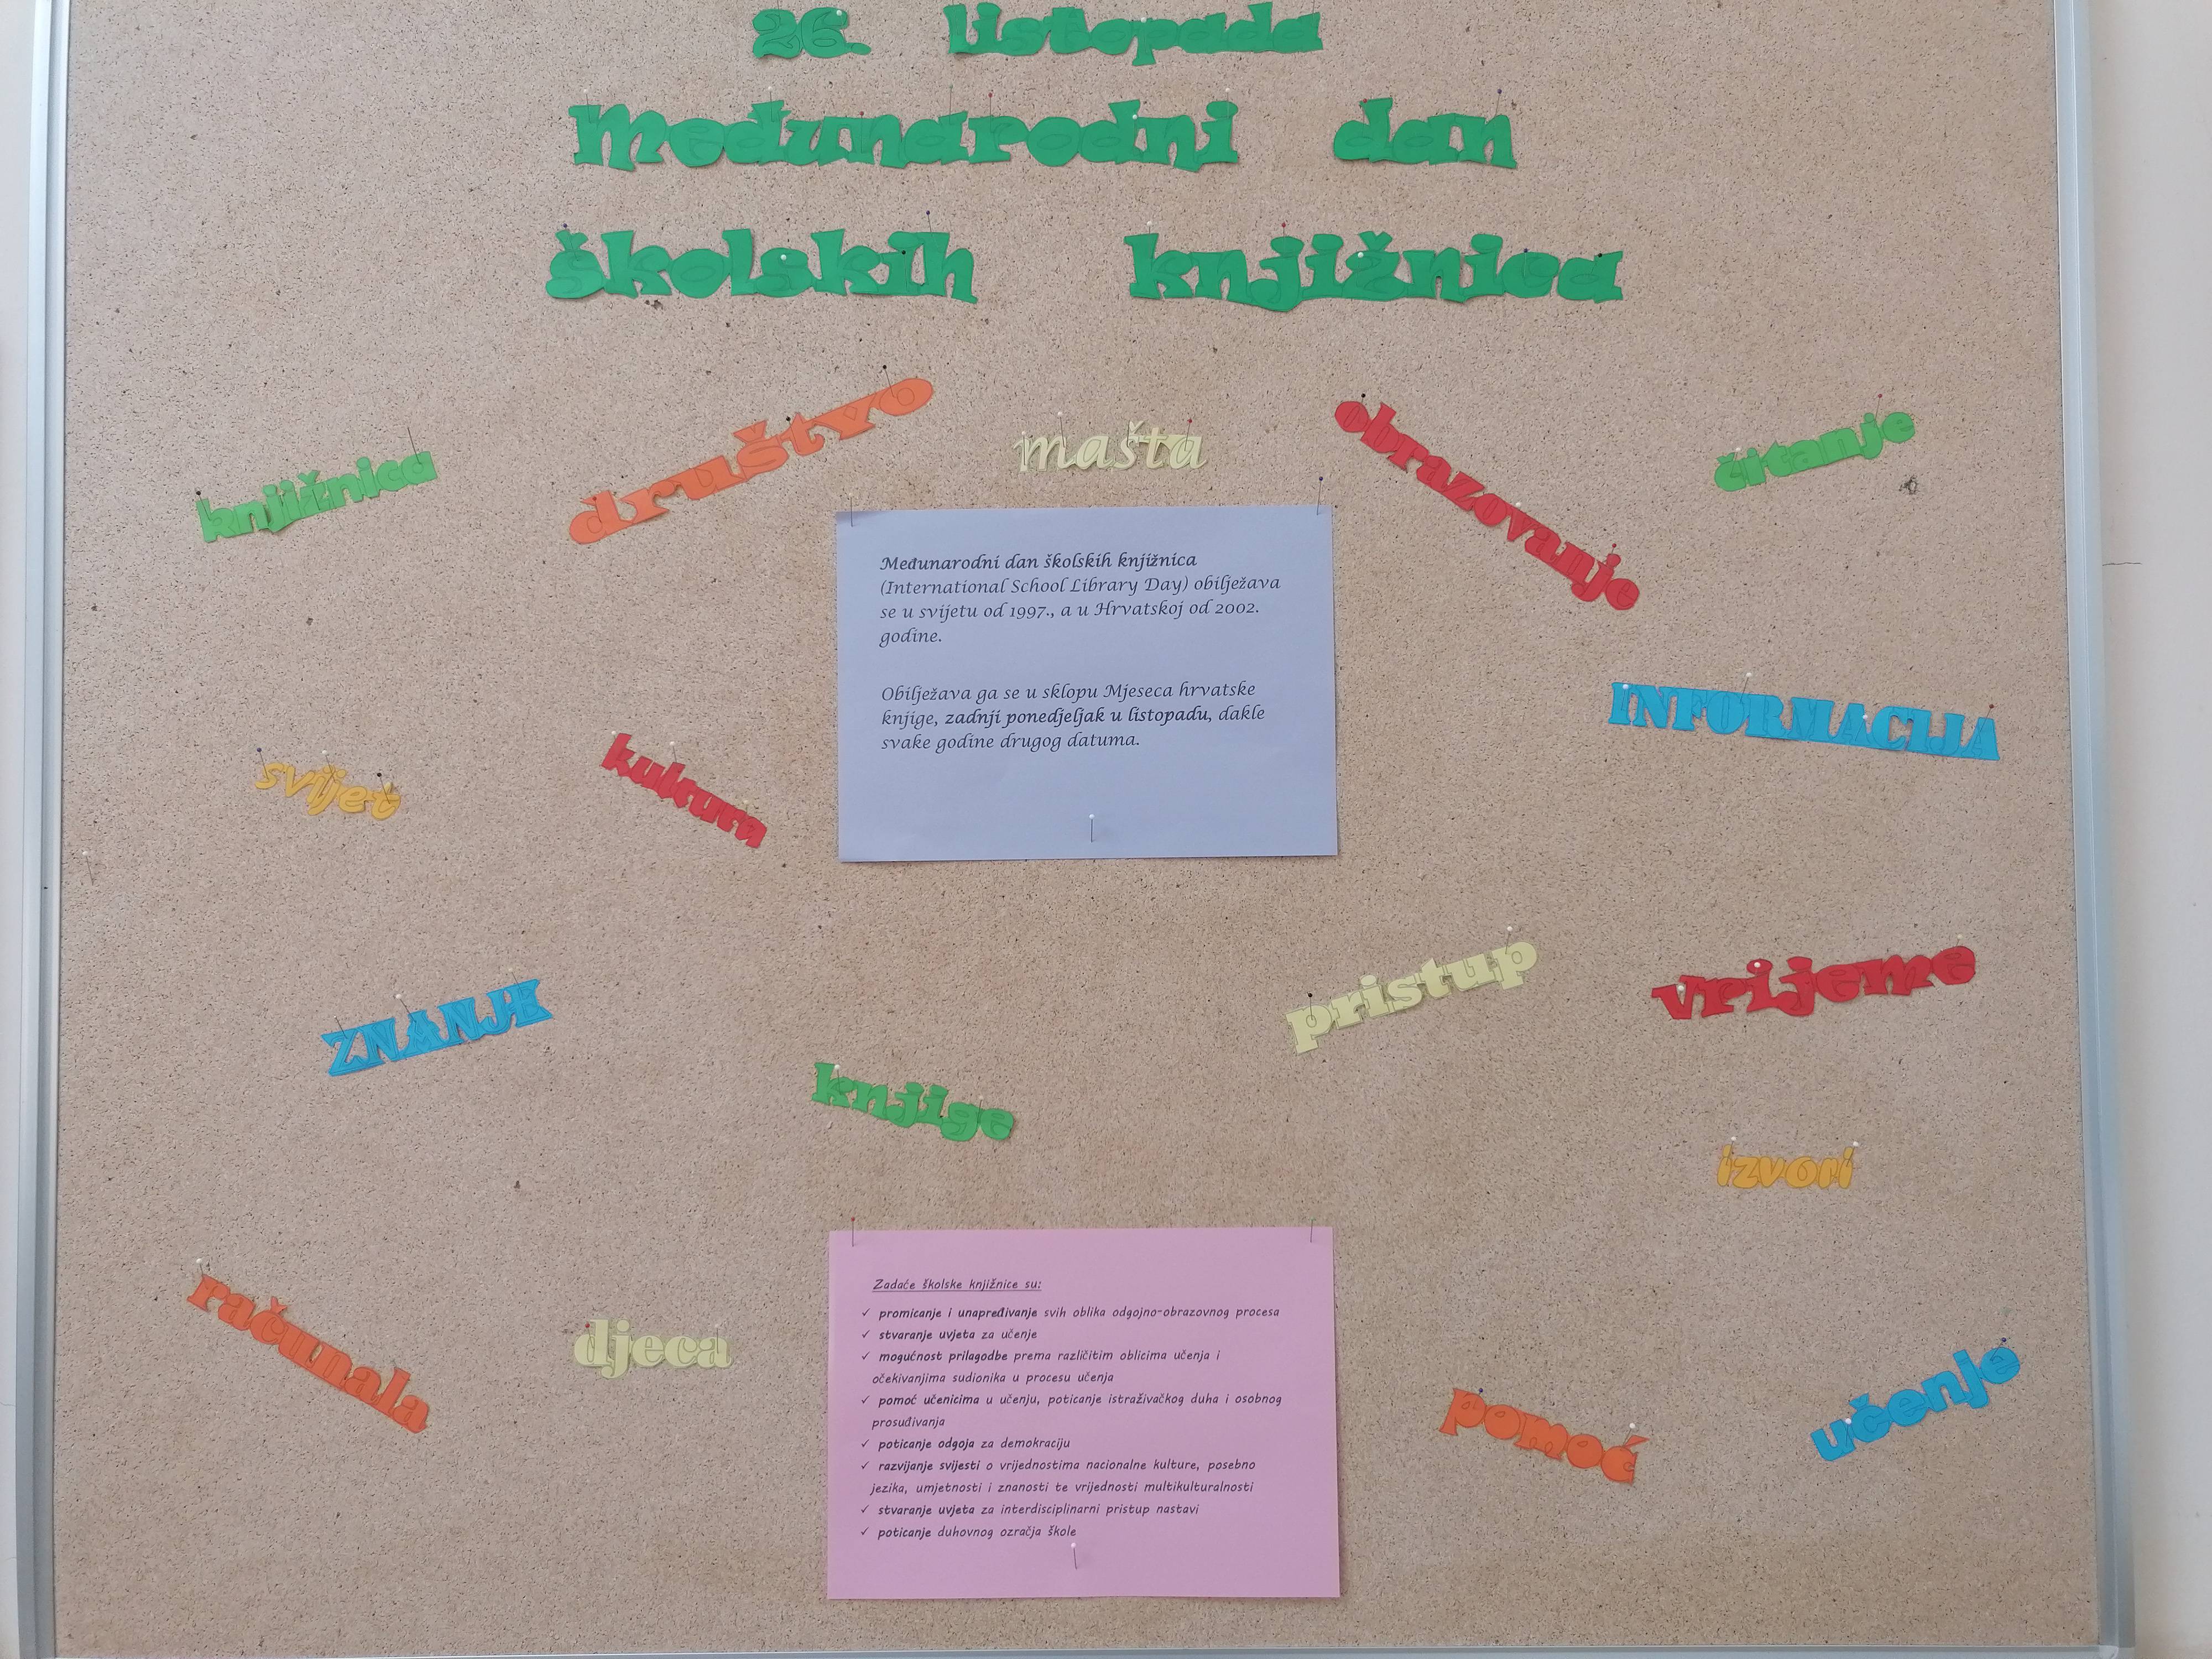 26. listopada
Međunarodni dan
školskih knjižnica
knjižnica
društvo
mašta
obrazovanje
čitanje
Međunarodni dan školskih knjižnica
(International School Library Day) obilježava
se u svijetu od 1997., a u Hrvatskoj od 2002.
godine.
Obilježava ga se u sklopu Mjeseca hrvatske
knjige, zadnji ponedjeljak u listopadu, dakle
svake godine drugog datuma.
INFORMACIJA
svijet
kultura
ZNANJE
pristup
vrijeme
knjige
izvori
Zadaće školske knjižnice su:
✓ promicanje i unapređivanje svih oblika odgojno-obrazovnog procesa
✓ stvaranje uvjeta za učenje
✓ mogućnost prilagodbe prema različitim oblicima učenja i
očekivanjima sudionika u procesu učenja
✓ pomoć učenicima u učenju, poticanje istraživačkog duha i osobnog
prosuđivanja
✓ poticanje odgoja za demokraciju
✓ razvijanje svijesti o vrijednostima nacionalne kulture, posebno
jezika, umjetnosti i znanosti te vrijednosti multikulturalnosti
✓ stvaranje uvjeta za interdisciplinarni pristup nastavi
✓ poticanje duhovnog ozračja škole
računala
djeca
pomoć
učenje